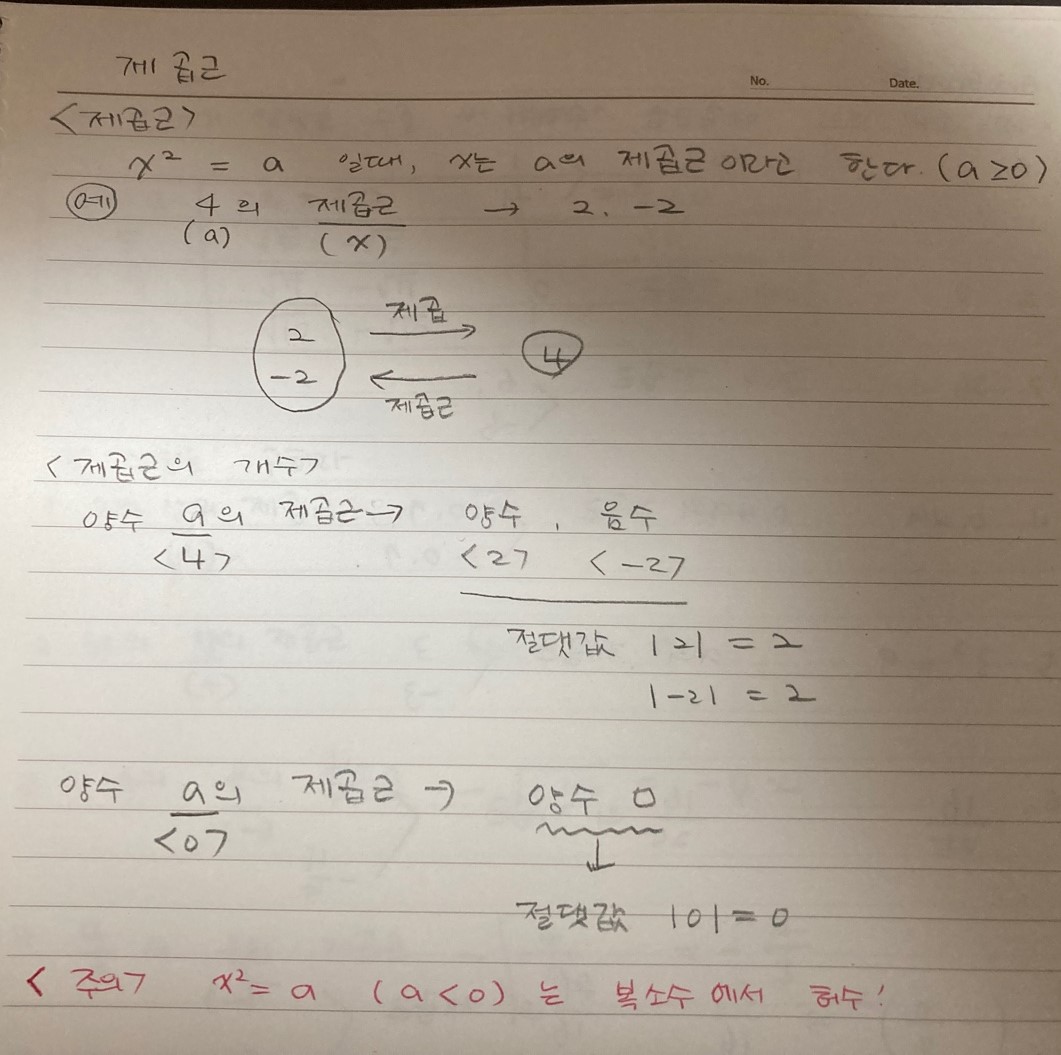 제곱근
No. Date.
<제곱근>
x² = a 일때, x는 a의 제곱근 이라고 한다. (a≥0)
예 4의 제곱근 → 2, -2
(a) (x)
제곱
2
4
-2
제곱근
<제곱근의 개수>
양수 a의 제곱근→ 양수, 음수
<4> <2> <-2>
절댓값 |2| = 2
|-2| = 2
양수 a의 제곱근 → 양수 0
<0>
↓
절댓값 |0| = 0
<주의> x² = a (a<0) 는 복소수에서 허수!